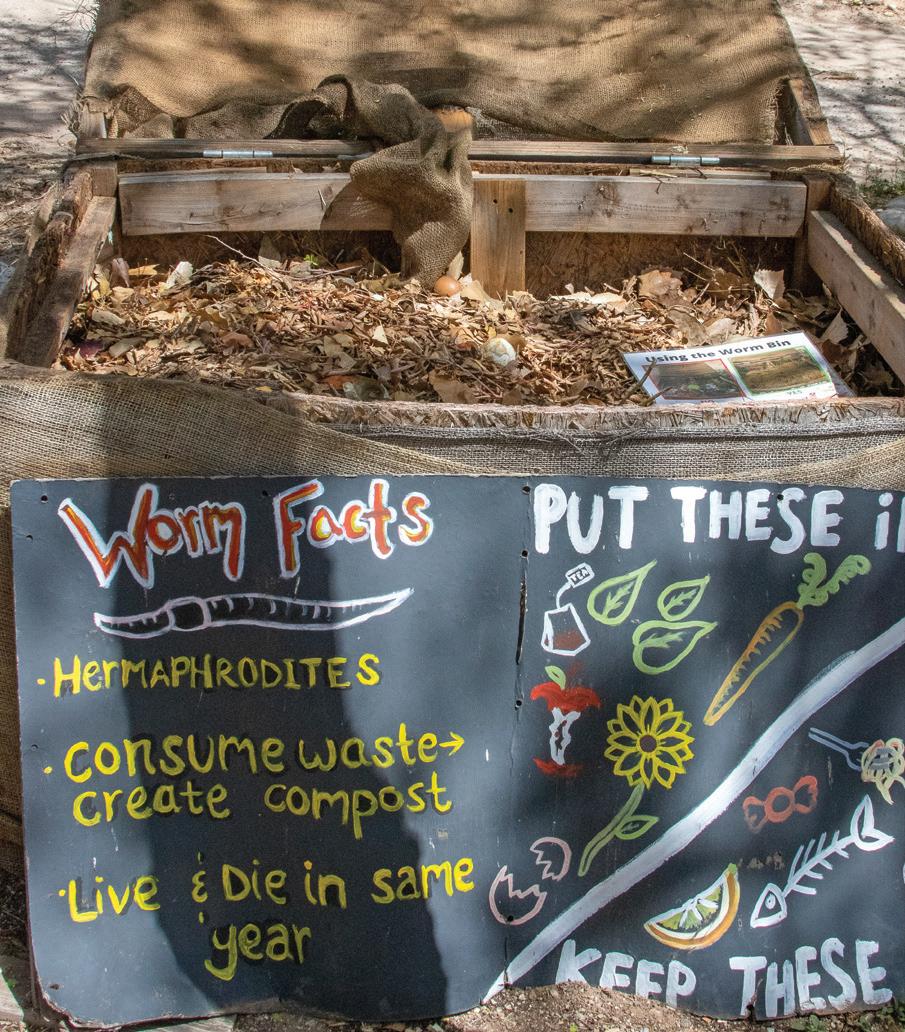 Using the Worm Bin
Worm Facts
· HERMAPHRODITES
· consume waste→
create compost
· Live & Die in same
year
PUT THESE
TEA
KEEP THESE